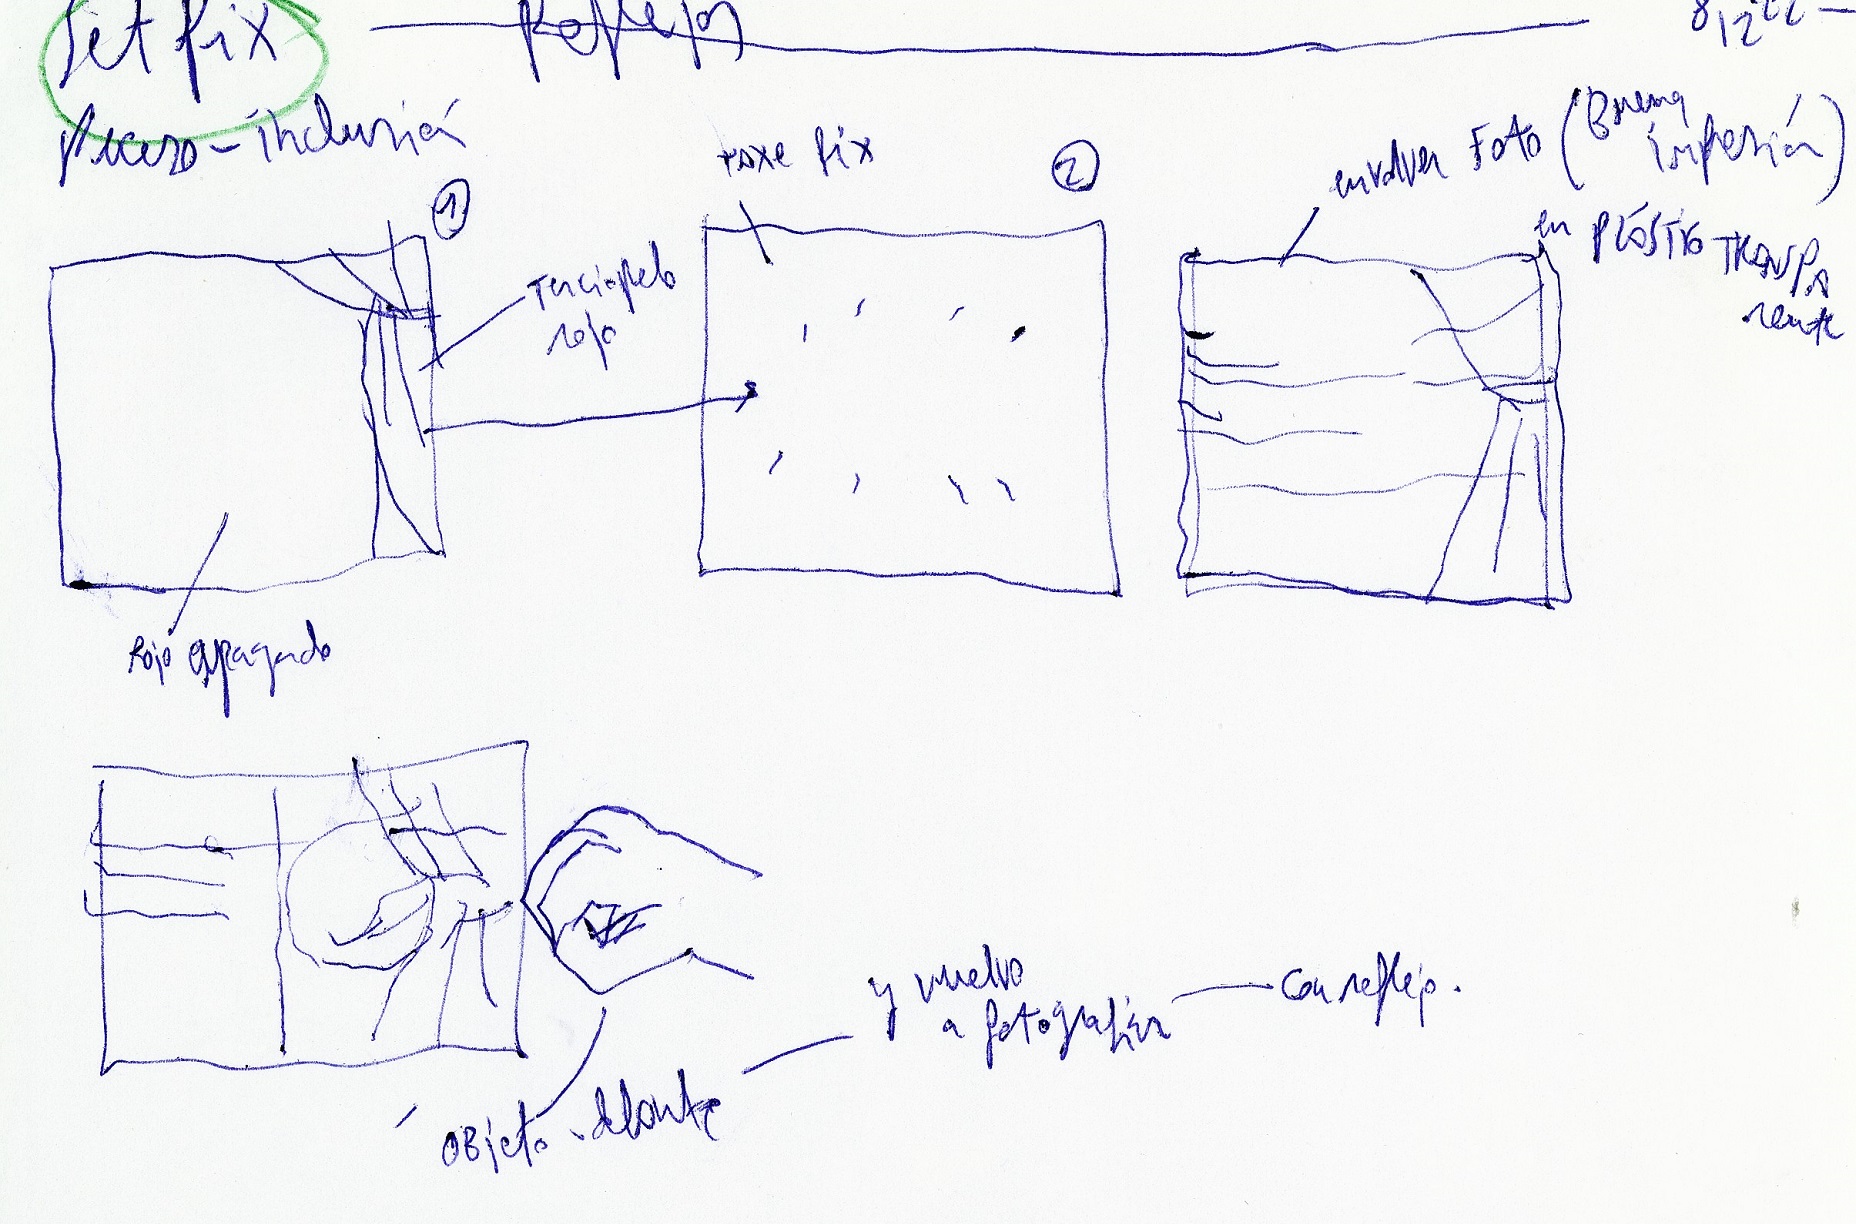 Set fix — Reflejos
Proceso - inclusión
①
Terciopelo
rojo
Rojo apagado
fix
②
envolver Foto (Buena
impresión)
en PLÁSTICO TRANSPA
rente
Objeto delante
y vuelvo
a fotografiar
Con reflejo.